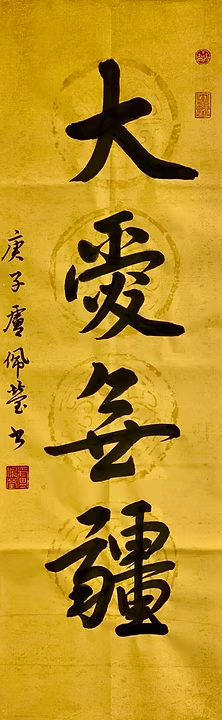 大愛無疆
庚子盧佩瑩书